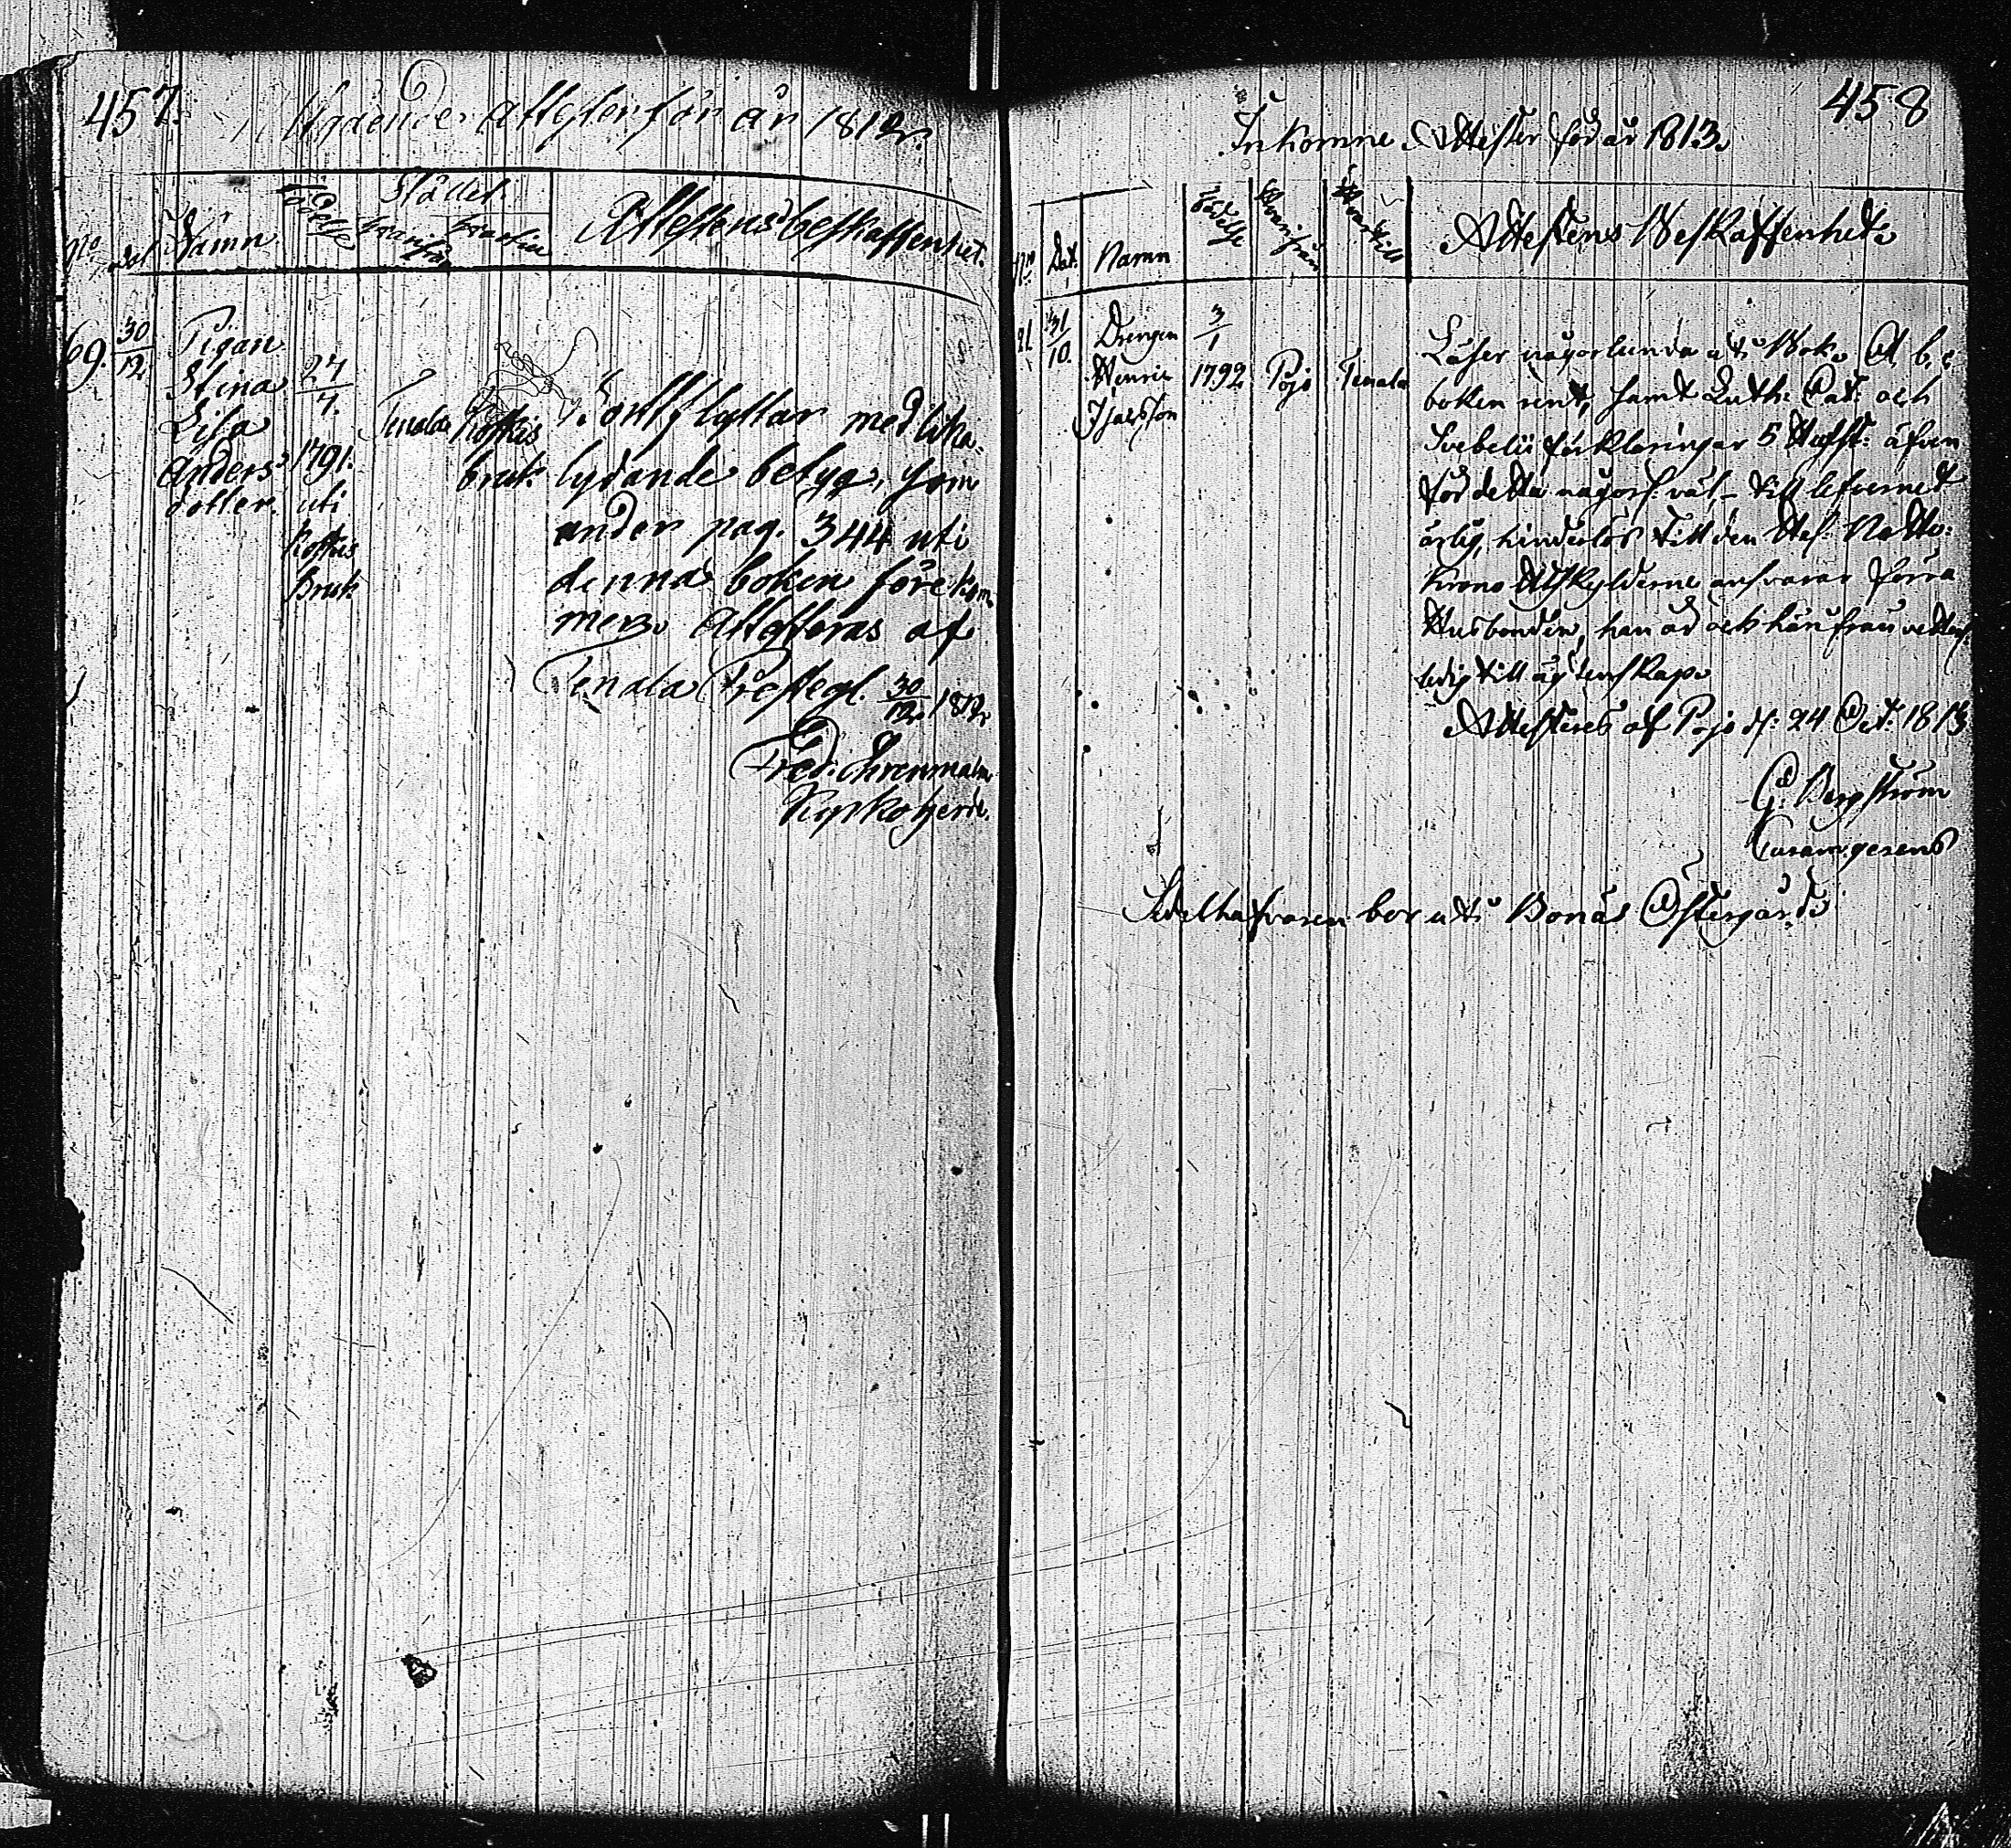 457.
Utgående Attester för år 1812.
No
Dat
Namn
Födelse
Stället
hvarifrån
hvartill
Attestens beskaffenhet.
69.
30/12
Pigan
Stina
Lisa
Anders
dotter.
24/7.
1791.
uti
Koskis
Bruk
Tenala
Koskis
bruk
Bortflyttar med lika
lydande betyg, som
under pag. 344 uti
denna boken förekom
mer. Attesteras af
Tenala Prestegl. 30/12 1812
Fred. Ehrenmalm
Kyrkoherde.
458
Inkomne Attester för år 1813.
No
Dat.
Namn
Födelse
Hvarifrån
Hvartill
Attestens Beskaffenhet
21
31/10
Drengen
Henric
Isacsson
3/1
1792
Pojo
Tenala
Läser någorlunda uti Bok. A, b, c
boken rent, samt Luth: Cat: och
Svebelii förklaringar 5 Hufst: äfven
för detta någorl: väl, till lefvernet
ärlig, hinderlös till den Hel: Nattv:
Krono Utskylderne ansvarar förra
Husbonden, han är och härifrån
ledig till ägtenskap.
Attesteres af Pojo d: 24 Oct: 1813
G: Bergström
Sedelhafvaren bor uti Bonäs Östergård